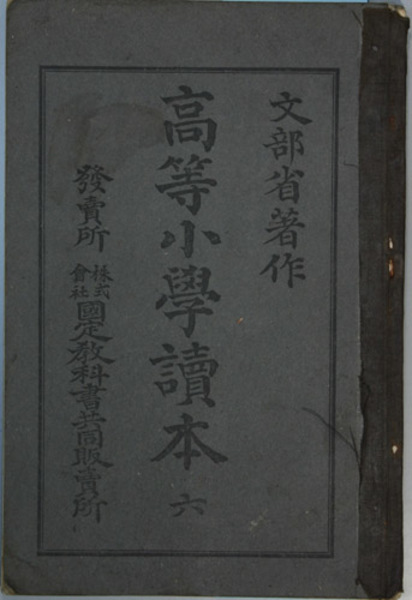 文部省著作
高等小學讀本 六
發賣所 株式會社 國定教科書共同販賣所